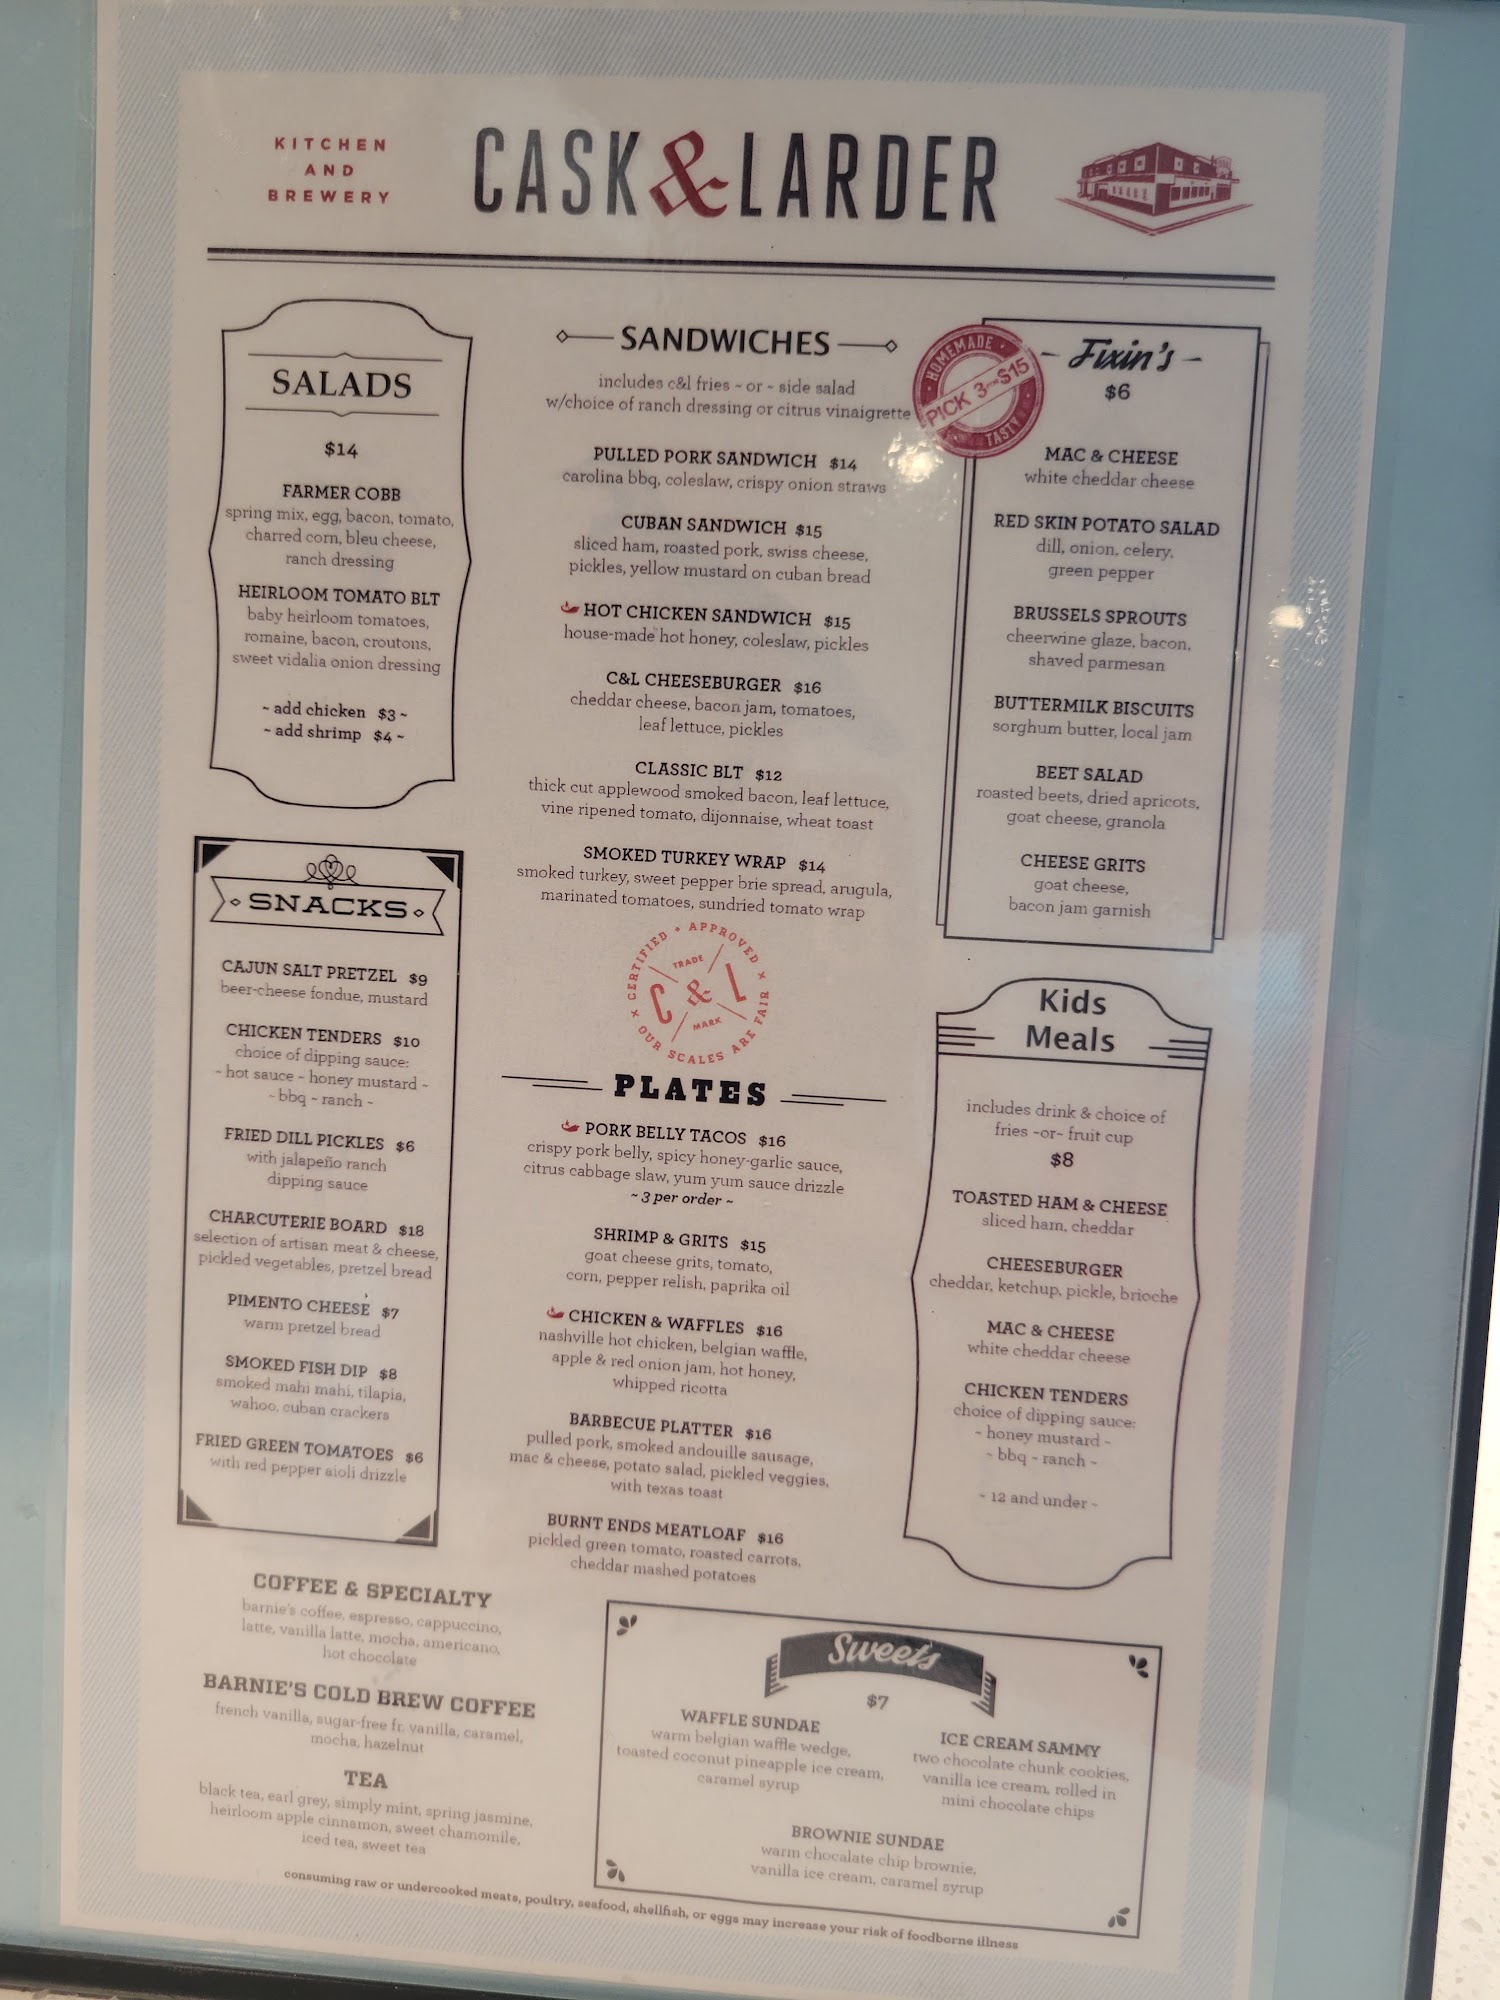 KITCHEN
AND
BREWERY
CASK&LARDER
SALADS
$14
FARMER COBB
spring mix, egg, bacon, tomato,
charred corn, bleu cheese,
ranch dressing
HEIRLOOM TOMATO BLT
baby heirloom tomatoes,
romaine, bacon, croutons,
sweet vidalia onion dressing
~ add chicken $3 ~
~ add shrimp $4 ~
SNACKS
CAJUN SALT PRETZEL $9
beer-cheese fondue, mustard
CHICKEN TENDERS $10
choice of dipping sauce:
~ hot sauce ~ honey mustard ~
~ bbq ~ ranch ~
FRIED DILL PICKLES $6
with jalapeño ranch
dipping sauce
CHARCUTERIE BOARD $18
selection of artisan meat & cheese,
pickled vegetables, pretzel bread
PIMENTO CHEESE $7
warm pretzel bread
SMOKED FISH DIP $8
smoked mahi mahi, tilapia,
wahoo, cuban crackers
FRIED GREEN TOMATOES $6
with red pepper aioli drizzle
COFFEE & SPECIALTY
barnie's coffee, espresso, cappuccino,
latte, vanilla latte, mocha, americano,
hot chocolate
BARNIE'S COLD BREW COFFEE
french vanilla, sugar-free fr. vanilla, caramel,
mocha, hazelnut
TEA
black tea, earl grey, simply mint, spring jasmine,
heirloom apple cinnamon, sweet chamomile,
iced tea, sweet tea
SANDWICHES
includes c&l fries ~ or ~ side salad
w/choice of ranch dressing or citrus vinaigrette
PULLED PORK SANDWICH $14
carolina bbq, coleslaw, crispy onion straws
CUBAN SANDWICH $15
sliced ham, roasted pork, swiss cheese,
pickles, yellow mustard on cuban bread
HOT CHICKEN SANDWICH $15
house-made hot honey, coleslaw, pickles
C&L CHEESEBURGER $16
cheddar cheese, bacon jam, tomatoes,
leaf lettuce, pickles
CLASSIC BLT $12
thick cut applewood smoked bacon, leaf lettuce,
vine ripened tomato, dijonnaise, wheat toast
SMOKED TURKEY WRAP $14
smoked turkey, sweet pepper brie spread, arugula,
marinated tomatoes, sundried tomato wrap
CERTIFIED + APPROVED × OUR SCALES ARE FAIR ×
TRADE
C & L
MARK
PLATES
PORK BELLY TACOS $16
crispy pork belly, spicy honey-garlic sauce,
citrus cabbage slaw, yum yum sauce drizzle
~ 3 per order ~
SHRIMP & GRITS $15
goat cheese grits, tomato,
corn, pepper relish, paprika oil
CHICKEN & WAFFLES $16
nashville hot chicken, belgian waffle,
apple & red onion jam, hot honey,
whipped ricotta
BARBECUE PLATTER $16
pulled pork, smoked andouille sausage,
mac & cheese, potato salad, pickled veggies,
with texas toast
BURNT ENDS MEATLOAF $16
pickled green tomato, roasted carrots,
cheddar mashed potatoes
HOMEMADE
PICK 3 FOR $15
TASTY
Fixin's
$6
MAC & CHEESE
white cheddar cheese
RED SKIN POTATO SALAD
dill, onion, celery,
green pepper
BRUSSELS SPROUTS
cheerwine glaze, bacon,
shaved parmesan
BUTTERMILK BISCUITS
sorghum butter, local jam
BEET SALAD
roasted beets, dried apricots,
goat cheese, granola
CHEESE GRITS
goat cheese,
bacon jam garnish
Kids
Meals
includes drink & choice of
fries ~or~ fruit cup
$8
TOASTED HAM & CHEESE
sliced ham, cheddar
CHEESEBURGER
cheddar, ketchup, pickle, brioche
MAC & CHEESE
white cheddar cheese
CHICKEN TENDERS
choice of dipping sauce:
~ honey mustard ~
~ bbq ~ ranch ~
~ 12 and under ~
Sweets
$7
WAFFLE SUNDAE
warm belgian waffle wedge,
toasted coconut pineapple ice cream,
caramel syrup
ICE CREAM SAMMY
two chocolate chunk cookies,
vanilla ice cream, rolled in
mini chocolate chips
BROWNIE SUNDAE
warm chocalate chip brownie,
vanilla ice cream, caramel syrup
consuming raw or undercooked meats, poultry, seafood, shellfish, or eggs may increase your risk of foodborne illness